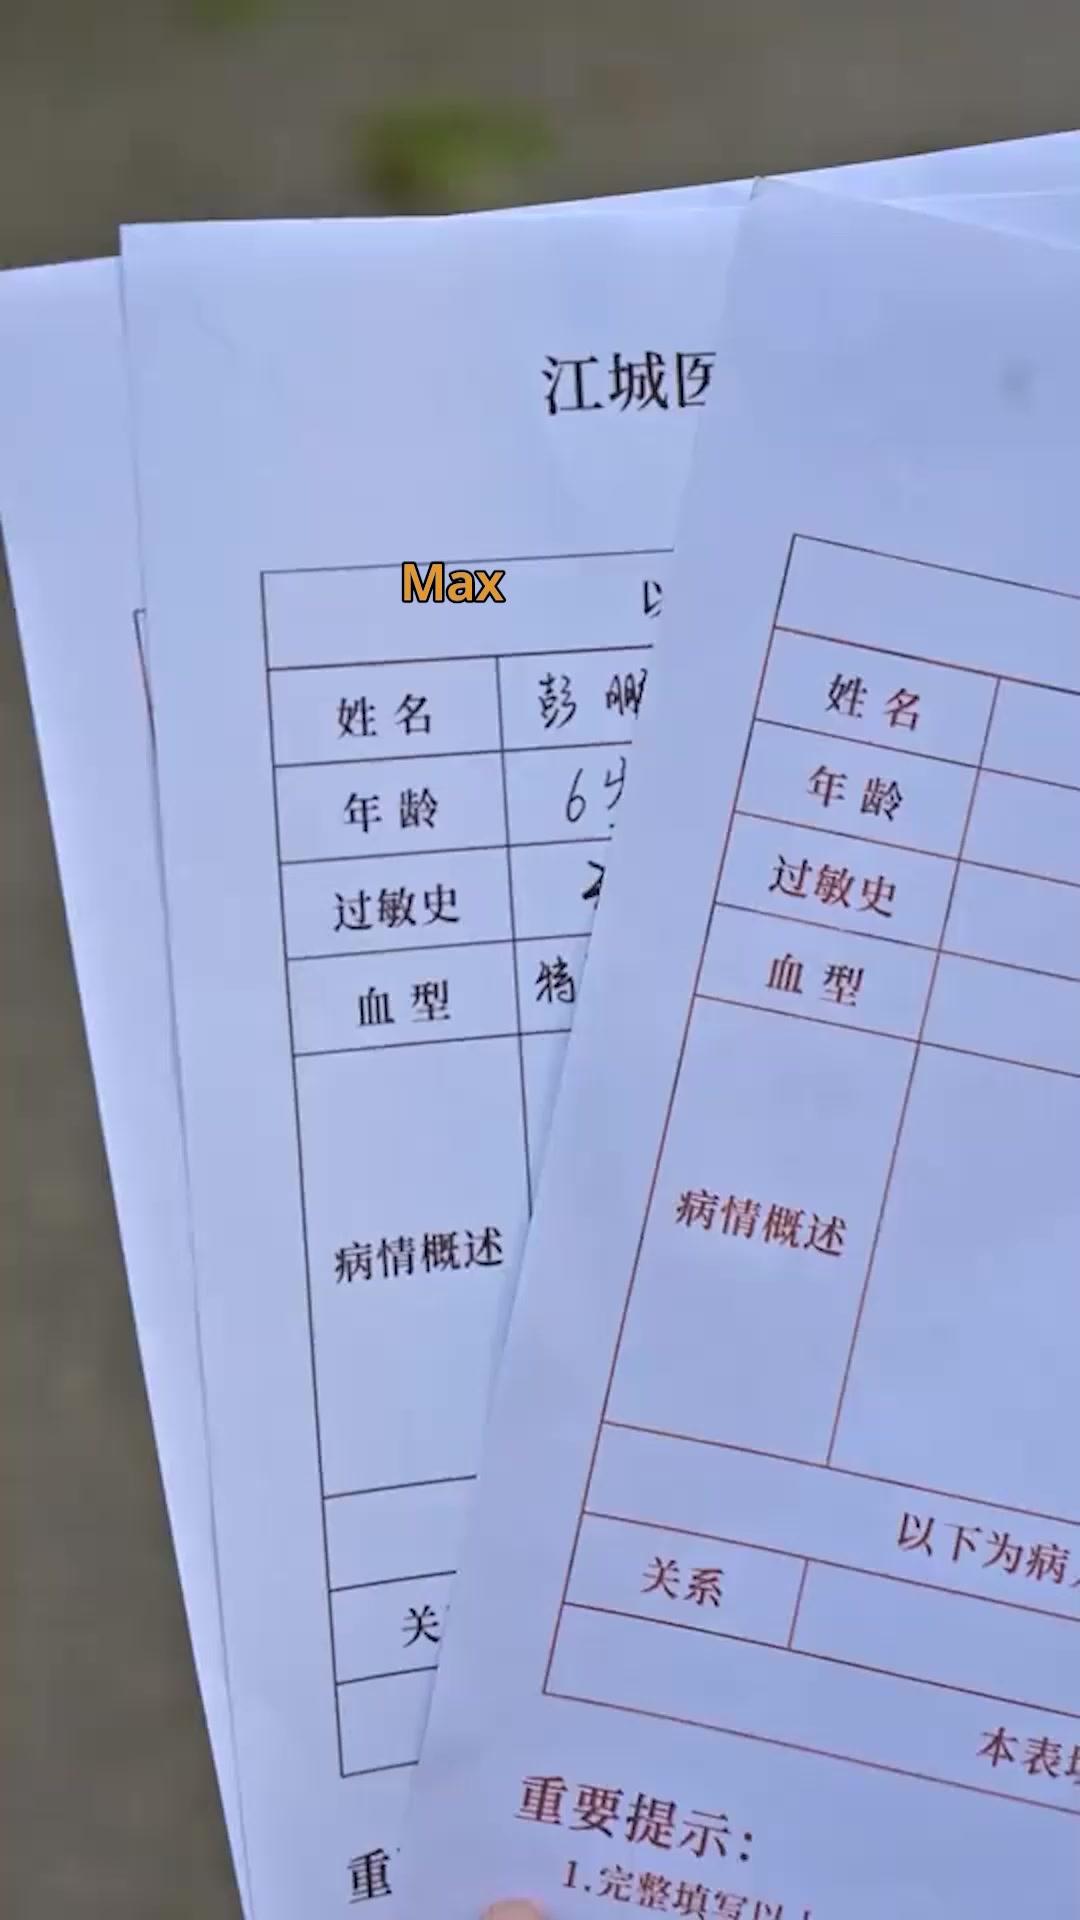 江城医
Max
以
姓名 彭鹏
年龄 65
过敏史
血型 特
病情概述
关
重
姓名
年龄
过敏史
血型
病情概述
以下为病
关系
本表填
重要提示：
1.完整填写以上